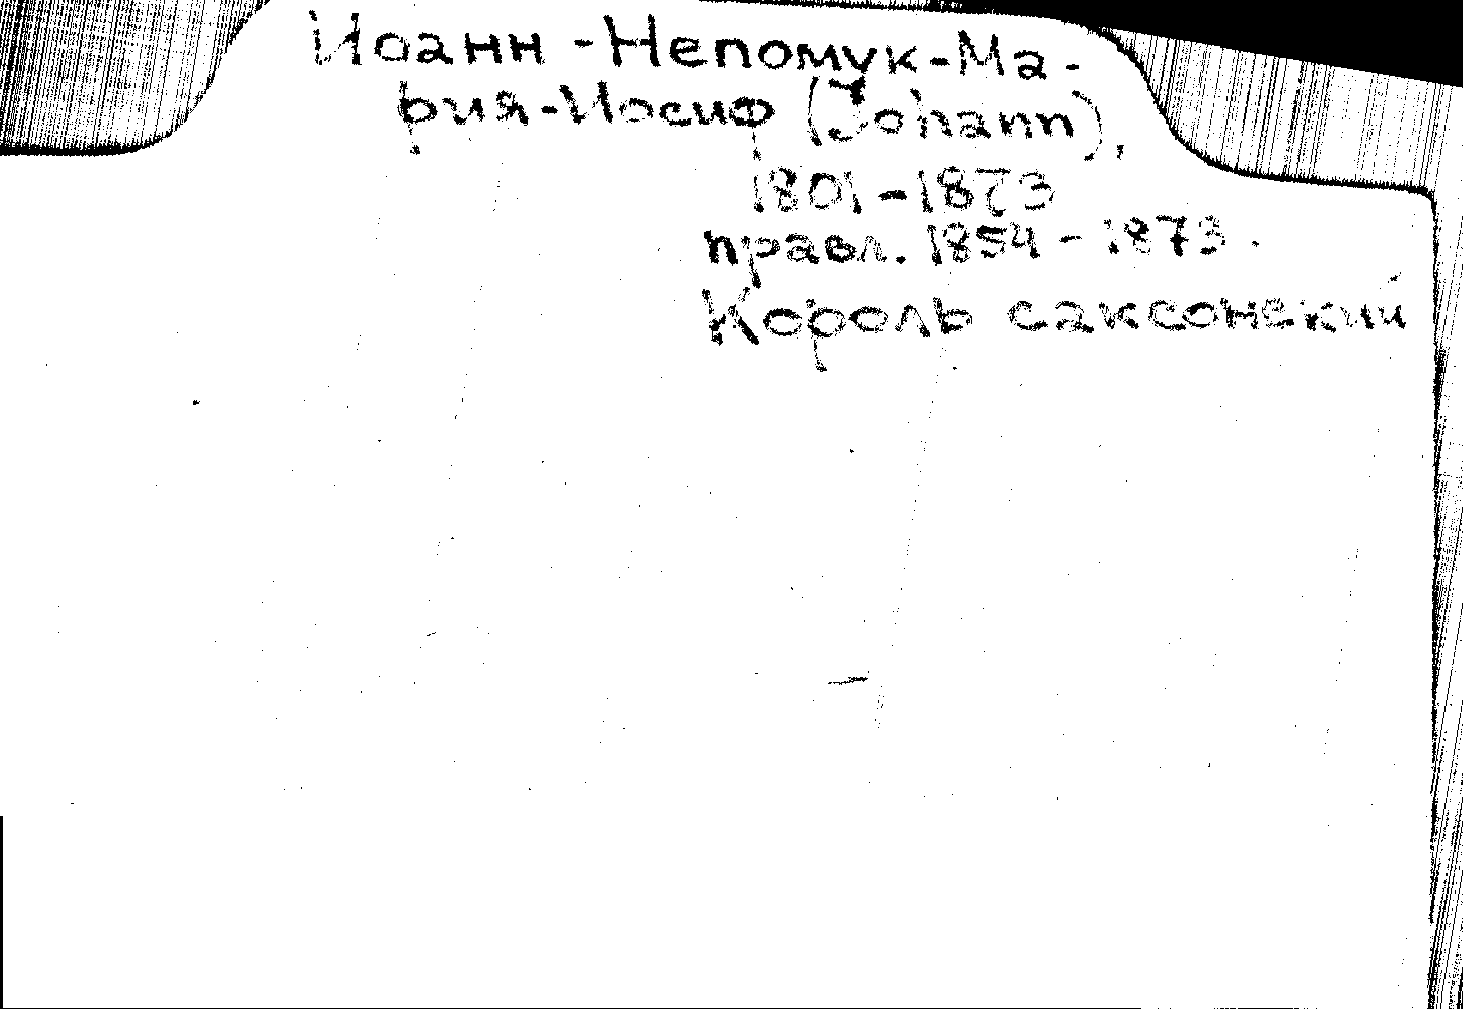 Иоанн-Непомук-Ма-
рия-Иосиф (Johann),
1801-1873
правл. 1854-1873.
Король саксонский